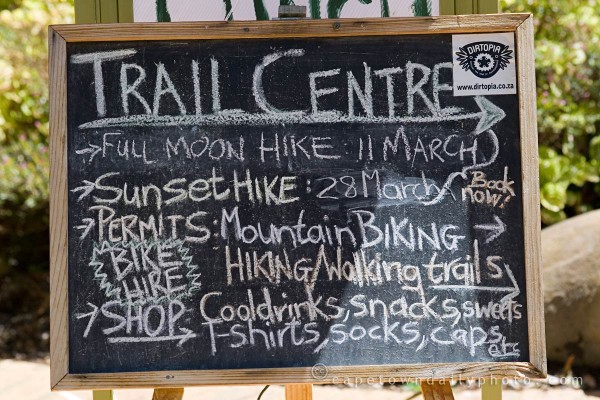 TRAIL CENTRE
DIRTOPIA
www.dirtopia.co.za
FULL MOON HIKE: 11 MARCH
SunsetHIKE: 28 March
Book
now!
PERMITS: Mountain BIKING
HIKING/Walking trails
BIKE
HIRE
SHOP Cooldrinks, snacks, sweets
T-shirts, socks, caps,
etc
© capetowndailyphoto.com